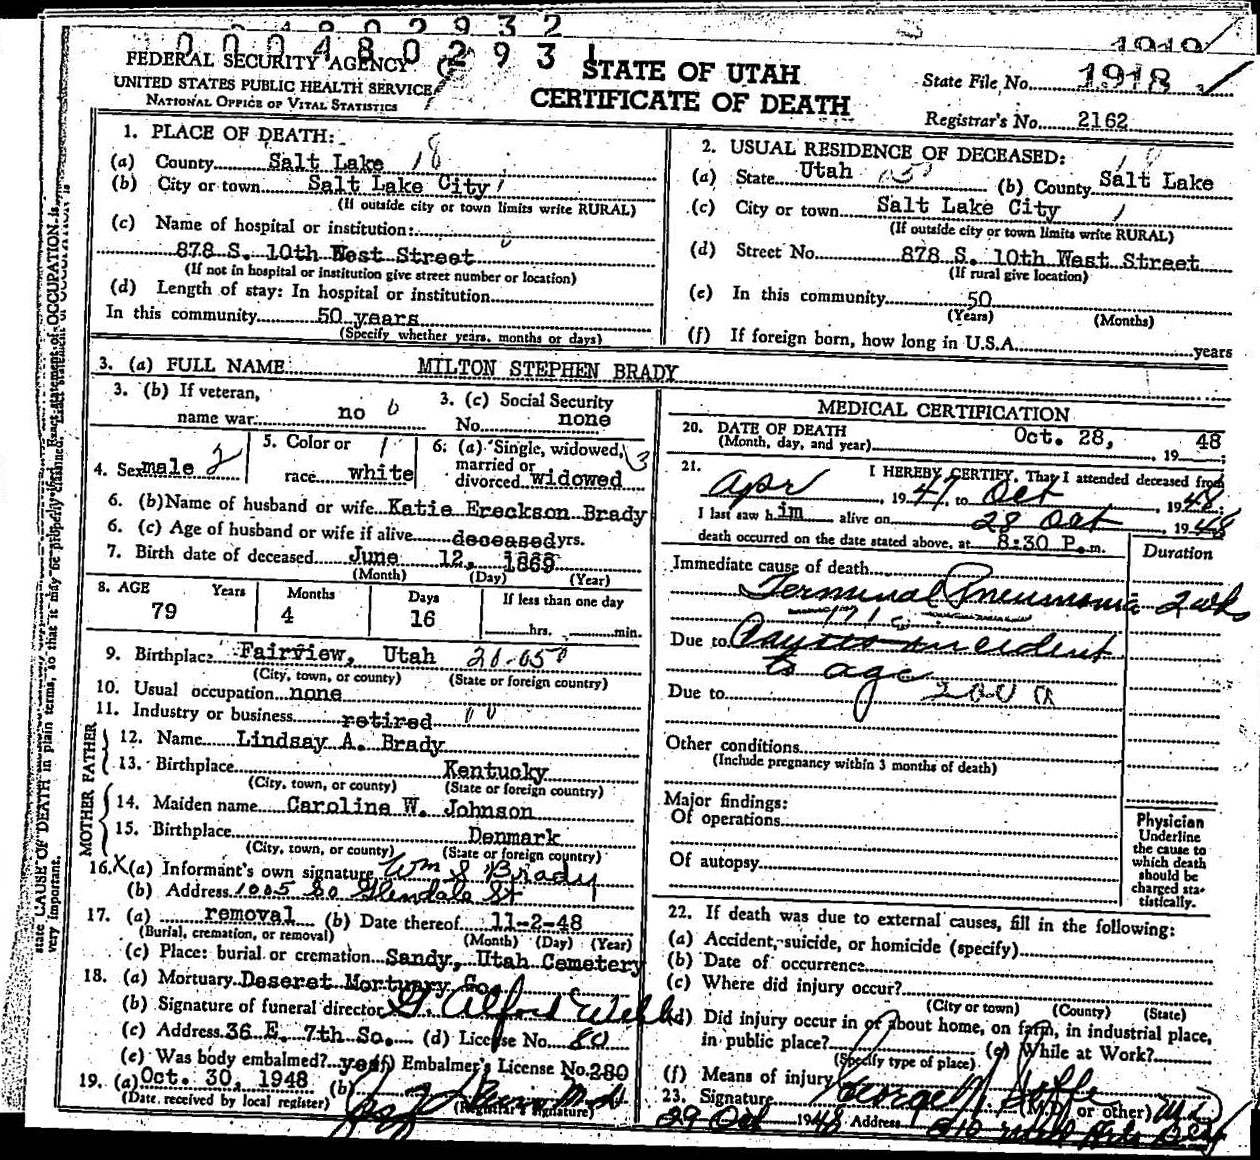 0004802932
1919
0004802931
FEDERAL SECURITY AGENCY
UNITED STATES PUBLIC HEALTH SERVICE
NATIONAL OFFICE OF VITAL STATISTICS
STATE OF UTAH
CERTIFICATE OF DEATH
State File No. 1918
Registrar's No. 2162
1. PLACE OF DEATH:
(a) County Salt Lake 18
(b) City or town Salt Lake City 1
(If outside city or town limits write RURAL)
(c) Name of hospital or institution:
878 S. 10th West Street
(If not in hospital or institution give street number or location)
(d) Length of stay: In hospital or institution
In this community 50 years
(Specify whether years, months or days)
2. USUAL RESIDENCE OF DECEASED:
(a) State Utah (b) County Salt Lake
(c) City or town Salt Lake City 1
(If outside city or town limits write RURAL)
(d) Street No. 878 S. 10th West Street
(If rural give location)
(e) In this community 50
(Years) (Months)
(f) If foreign born, how long in U.S.A. years
3. (a) FULL NAME MILTON STEPHEN BRADY
3. (b) If veteran, name war no
3. (c) Social Security No. none
4. Sex male 2
5. Color or race white 1
6. (a) Single, widowed, married or divorced widowed 3
6. (b) Name of husband or wife Katie Ereckson Brady
6. (c) Age of husband or wife if alive deceased yrs.
7. Birth date of deceased June 12, 1869
(Month) (Day) (Year)
8. AGE Years Months Days If less than one day
79 4 16 hrs. min.
9. Birthplace Fairview, Utah
(City, town, or county) (State or foreign country)
10. Usual occupation none
11. Industry or business retired
FATHER
12. Name Lindsay A. Brady
13. Birthplace Kentucky
(City, town, or county) (State or foreign country)
MOTHER
14. Maiden name Caroline W. Johnson
15. Birthplace Denmark
(City, town, or county) (State or foreign country)
16. X (a) Informant's own signature Wm S Brady
(b) Address 1005 So Glendale St
17. (a) removal (b) Date thereof 11-2-48
(Burial, cremation, or removal) (Month) (Day) (Year)
(c) Place: burial or cremation Sandy, Utah Cemetery
18. (a) Mortuary Deseret Mortuary Co.
(b) Signature of funeral director
(c) Address 36 E. 7th So. (d) License No. 80
(e) Was body embalmed? yes (f) Embalmer's License No. 280
19. (a) Oct. 30, 1948 (b)
(Date received by local register) (Registrar's signature)
MEDICAL CERTIFICATION
20. DATE OF DEATH
(Month, day, and year) Oct. 28, 19 48
21. I HEREBY CERTIFY, That I attended deceased from
Apr, 1947, to Oct, 1948;
I last saw him alive on 28 Oct, 1948
death occurred on the date stated above, at 8:30 P.m.
Duration
Immediate cause of death
Terminal Pneumonia 2 wks
Due to incident
to age
Due to
Other conditions
(Include pregnancy within 3 months of death)
Major findings:
Of operations
Of autopsy
Physician
Underline
the cause to
which death
should be
charged sta-
tistically.
22. If death was due to external causes, fill in the following:
(a) Accident, suicide, or homicide (specify)
(b) Date of occurrence
(c) Where did injury occur?
(City or town) (County) (State)
(d) Did injury occur in or about home, on farm, in industrial place,
in public place? (e) While at Work?
(Specify type of place)
(f) Means of injury
23. Signature George (M.D. or other) MD
29 Oct 1948 Address
state CAUSE OF DEATH in plain terms, so that it may be properly classified. Exact statement of OCCUPATION is
very important.